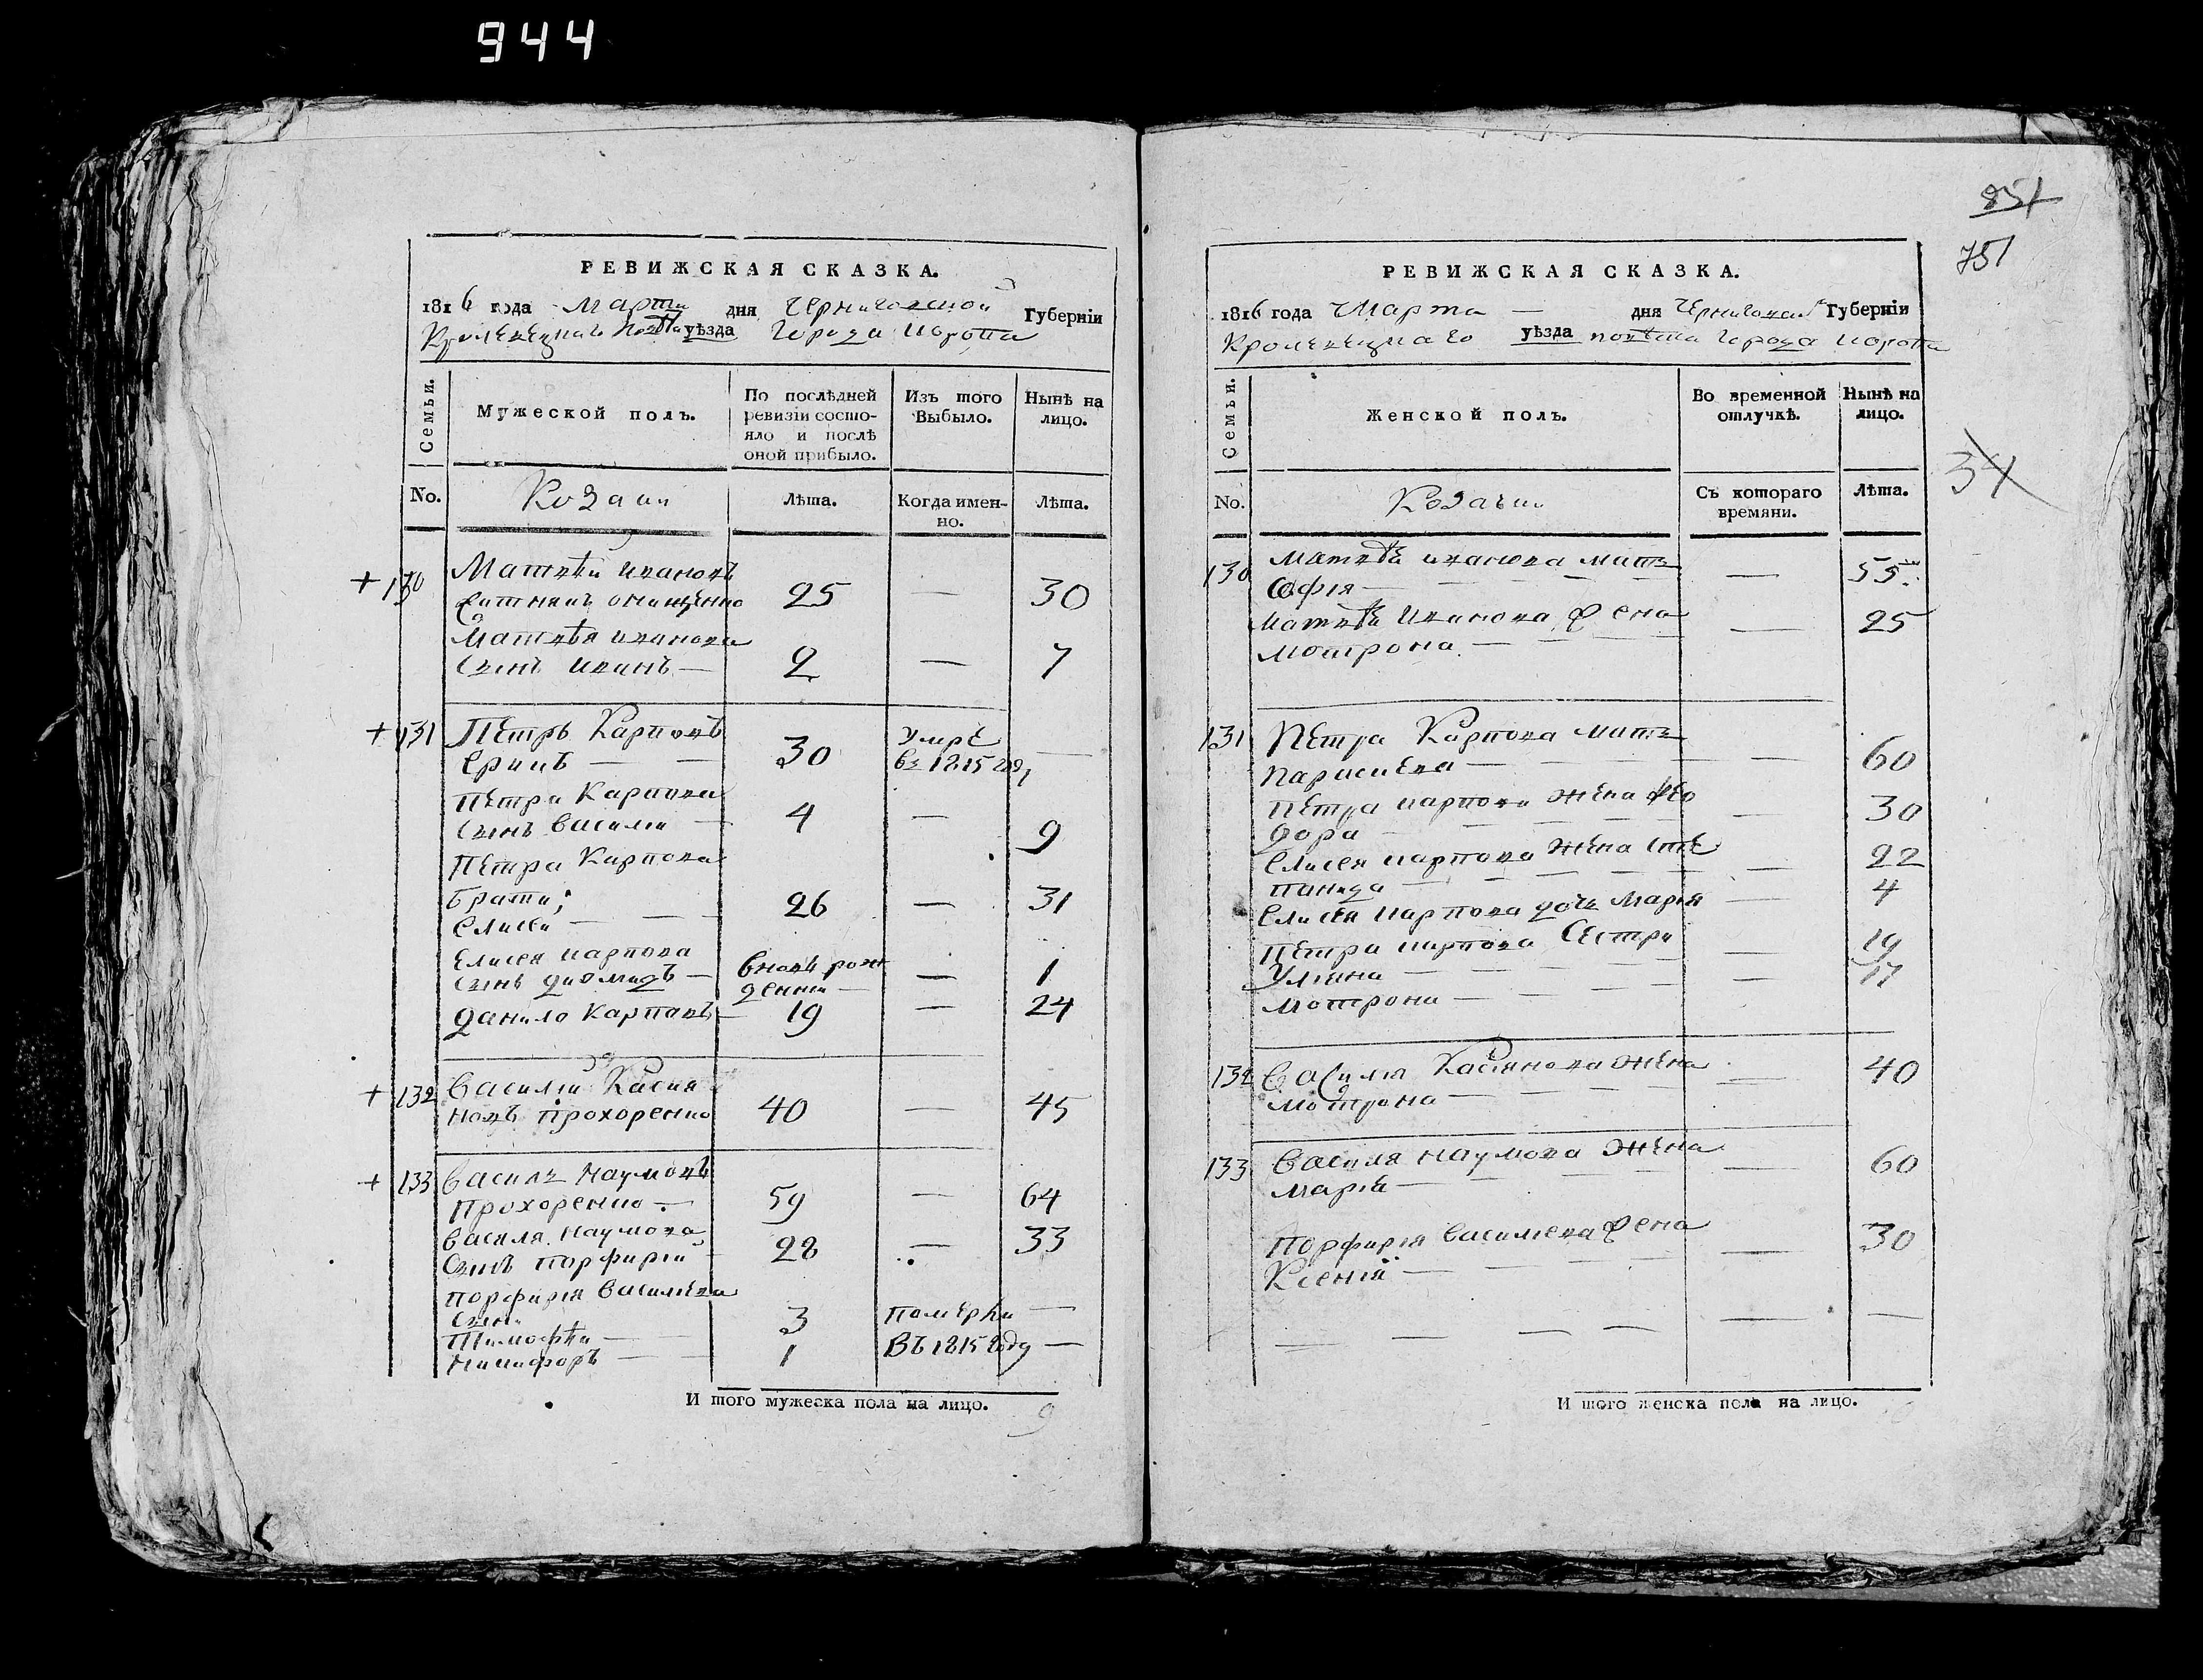 944
РЕВИЖСКАЯ СКАЗКА.
1816 года Марта дня Черниговской Губерніи
Кролевецкаго повѣта уѣзда Города Коропа
Семьи.
Мужеской полъ.
По послѣдней ревизіи состояло и послѣ оной прибыло.
Изъ того Выбыло.
Нынѣ на лицо.
No.
Козаки
Лѣта.
Когда именно.
Лѣта.
+ 130 Матвѣй Ивановъ
Ситникъ Онищенко 25 — 30
Матвѣя Иванова
Сынъ Иванъ — 2 — 7
+ 131 Петръ Карповъ Умре
— — 30 въ 1815 году —
Петра Карпова
Сынъ Василий — 4 — 9
Петра Карпова
Брати;
Елисей — — 26 — 31
Елисея Карпова
Сынъ Диомидъ — Вновь рожденни — — 1
Данило Карповъ — 19 — 24
+ 132 Василій Касияновъ Прохоренко 40 — 45
+ 133 Василь Наумовъ
Прохоренко — 59 — 64
Василя Наумова
Сынъ Порфирій 28 — 33
Порфирія Василиева
Сыни
Тимофѣй — — 3 Померли —
Никифоръ — — 1 Въ 1815 году —
И того мужеска пола на лицо. 9
851
751
34
РЕВИЖСКАЯ СКАЗКА.
1816 года Марта — дня Черниговской Губерніи
Кролевецкаго уѣзда повѣта Города Коропа
Семьи.
Женской полъ.
Во временной отлучкѣ.
Нынѣ на лицо.
No.
Козачки
Съ котораго времяни.
Лѣта.
130 Матвѣя Иванова мать
Софія — — — — 55
Матвѣя Иванова Жена
Мотрона — — — — 25
131 Петра Карпова мать
Парасцева — — — — 60
Петра Карпова жена Фео
дора — — — — 30
Елисея Карпова жена Сте
панида — — — — 22
Елисея Карпова дочь Марія — 4
Петра Карпова Сестри
Уліяна — — — — 19
Мотрона — — — — 17
132 Василя Касіянова жена
Мотрона — — — — 40
133 Василя Наумова жена
Марія — — — — 60
Порфирія Василиева Жена
Ксенія — — — — 30
— — — — — —
И того женска пола на лицо.